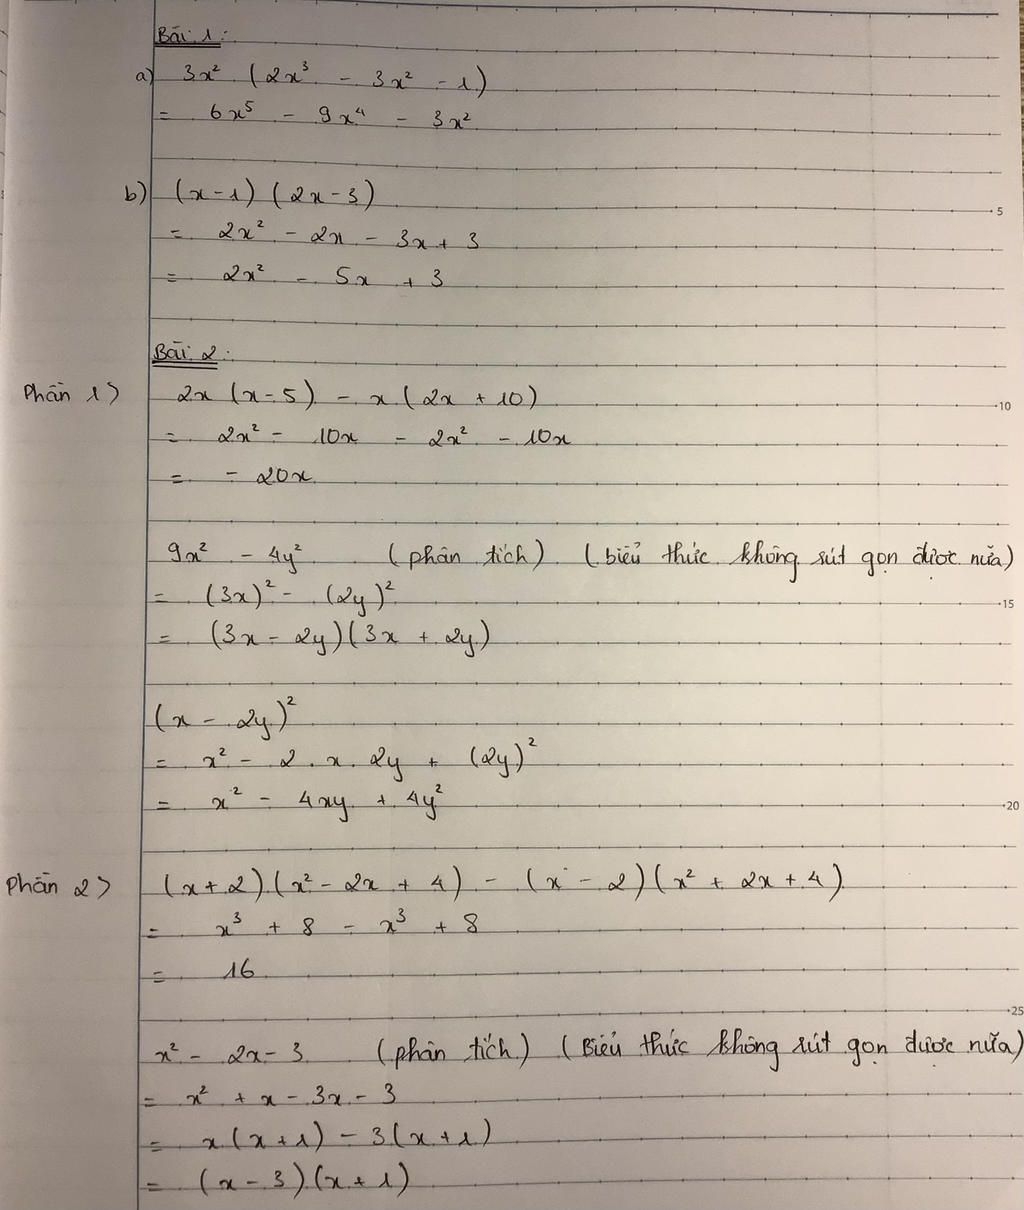 Bài 1:
a) 3x² (2x³ - 3x² - 1)
= 6x⁵ - 9x⁴ - 3x²
b) (x-1) (2x-3)
= 2x² - 2x - 3x + 3
= 2x² - 5x + 3
5
Bài 2:
Phần 1> 2x (x-5) - x (2x + 10)
10
= 2x² - 10x - 2x² - 10x
= - 20x
9x² - 4y² (phân tích) (biểu thức không rút gọn được nữa)
= (3x)² - (2y)²
15
= (3x - 2y)(3x + 2y)
(x - 2y)²
= x² - 2 . x . 2y + (2y)²
= x² - 4xy + 4y²
20
Phần 2> (x+2) (x² - 2x + 4) - (x - 2) (x² + 2x + 4)
= x³ + 8 - x³ + 8
= 16
25
x² - 2x - 3 (phân tích) (Biểu thức không rút gọn được nữa)
= x² + x - 3x - 3
= x (x+1) - 3(x+1)
= (x - 3) (x + 1)